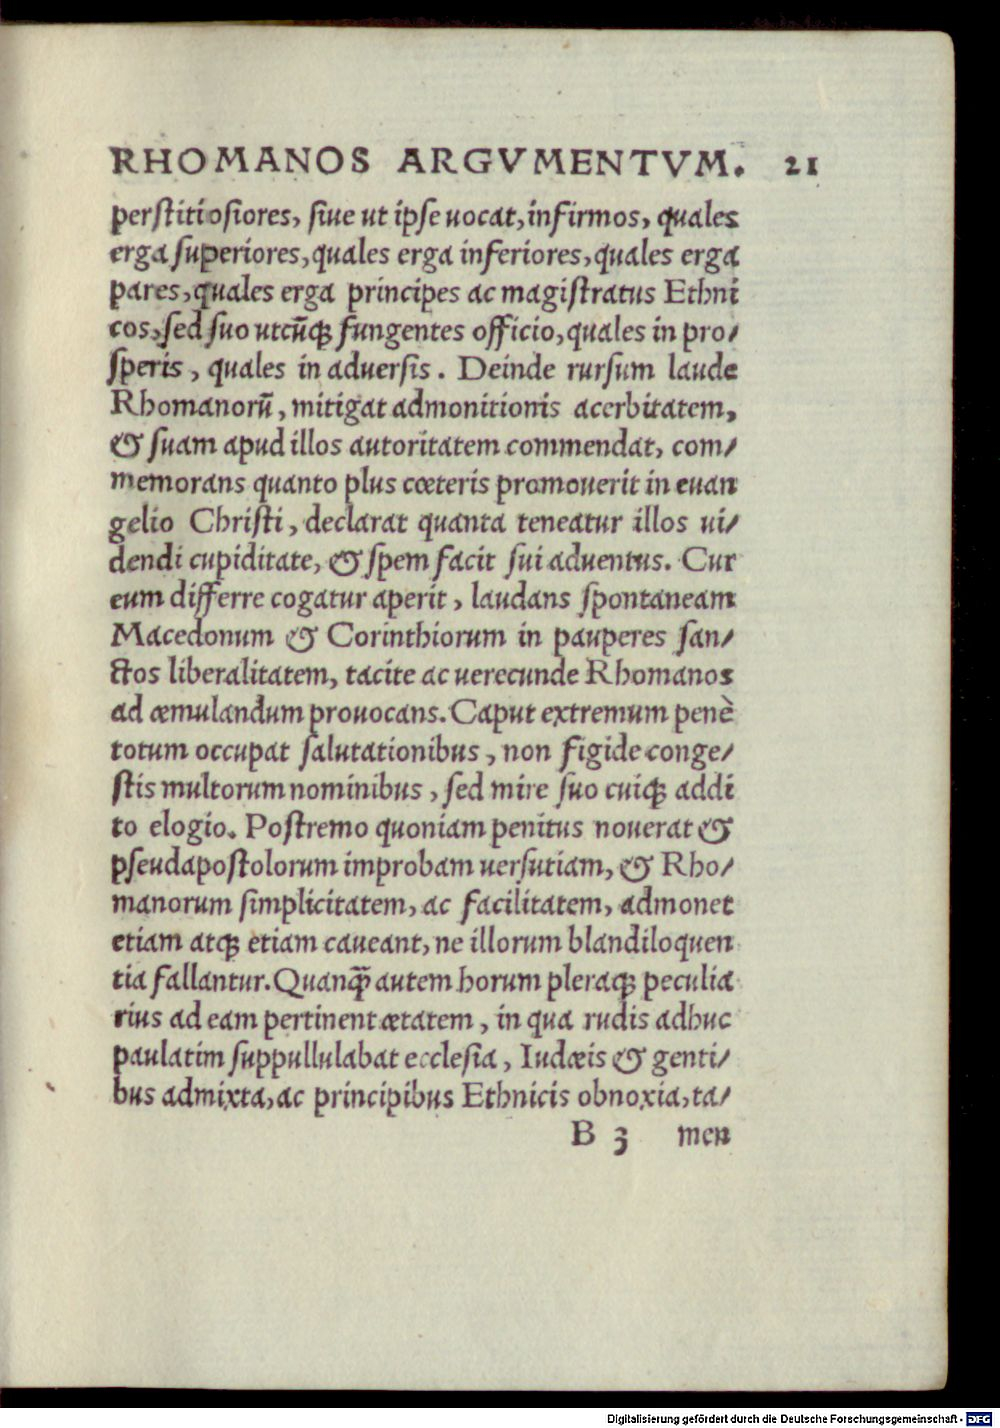 RHOMANOS ARGVMENTVM. 21
perstitiosiores, siue ut ipse uocat, infirmos, quales
erga superiores, quales erga inferiores, quales erga
pares, quales erga principes ac magistratus Ethni
cos, sed suo utcūq; fungentes officio, quales in pro/
speris, quales in aduersis. Deinde rursum laude
Rhomanorū, mitigat admonitionis acerbitatem,
& suam apud illos autoritatem commendat, com/
memorans quanto plus cœteris promouerit in euan
gelio Christi, declarat quanta teneatur illos ui/
dendi cupiditate, & spem facit sui aduentus. Cur
eum differre cogatur aperit, laudans spontaneam
Macedonum & Corinthiorum in pauperes san/
ctos liberalitatem, tacite ac uerecunde Rhomanos
ad æmulandum prouocans. Caput extremum penè
totum occupat salutationibus, non figide conge/
stis multorum nominibus, sed mire suo cuiq; addi
to elogio. Postremo quoniam penitus nouerat &
pseudapostolorum improbam uersutiam, & Rho/
manorum simplicitatem, ac facilitatem, admonet
etiam atq; etiam caueant, ne illorum blandiloquen
tia fallantur. Quanq̄ autem horum pleraq; peculia
rius ad eam pertinent ætatem, in qua rudis adhuc
paulatim suppullulabat ecclesia, Iudæis & genti/
bus admixta, ac principibus Ethnicis obnoxia, ta/
B 3 men
Digitalisierung gefördert durch die Deutsche Forschungsgemeinschaft - DFG